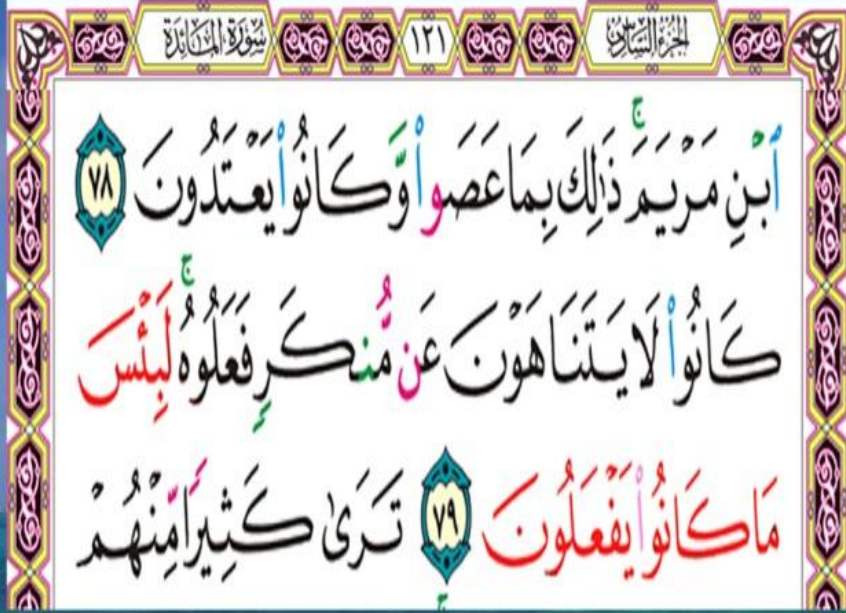 سُورَةُ المَائِدَةِ ١٢١ الجُزْءُ السَّادِسُ
ٱبْنِ مَرْيَمَ ۚ ذَٰلِكَ بِمَا عَصَوا۟ وَّكَانُوا۟ يَعْتَدُونَ ٧٨
كَانُوا۟ لَا يَتَنَاهَوْنَ عَن مُّنكَرٍ فَعَلُوهُ ۚ لَبِئْسَ
مَا كَانُوا۟ يَفْعَلُونَ ٧٩ تَرَىٰ كَثِيرًا مِّنْهُمْ